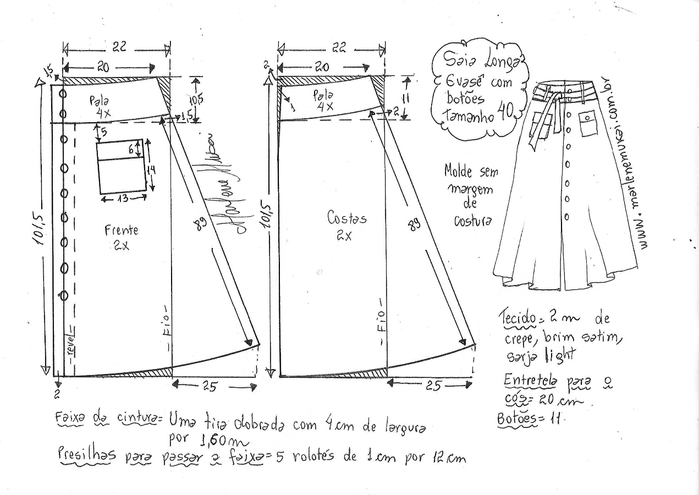 22
20
1,5
Pala
4x
10,5
1,5
5
6
14
13
101,5
Frente
2x
89
revel
Fio
2
25
22
20
2
1
Pala
4x
11
2
101,5
Costas
2x
89
Fio
25
Saia Longa
Evasê com
botões
Tamanho 40
Molde sem
margem
de
costura
www.marlenemukai.com.br
Tecido = 2 m de
crepe, brim satim,
sarja light
Entretela para o
cós = 20 cm.
Botões = 11
Faixa da cintura = Uma tira dobrada com 4 cm de largura
por 1,60 m
Presilhas para passar a faixa = 5 rolotés de 1 cm por 12 cm